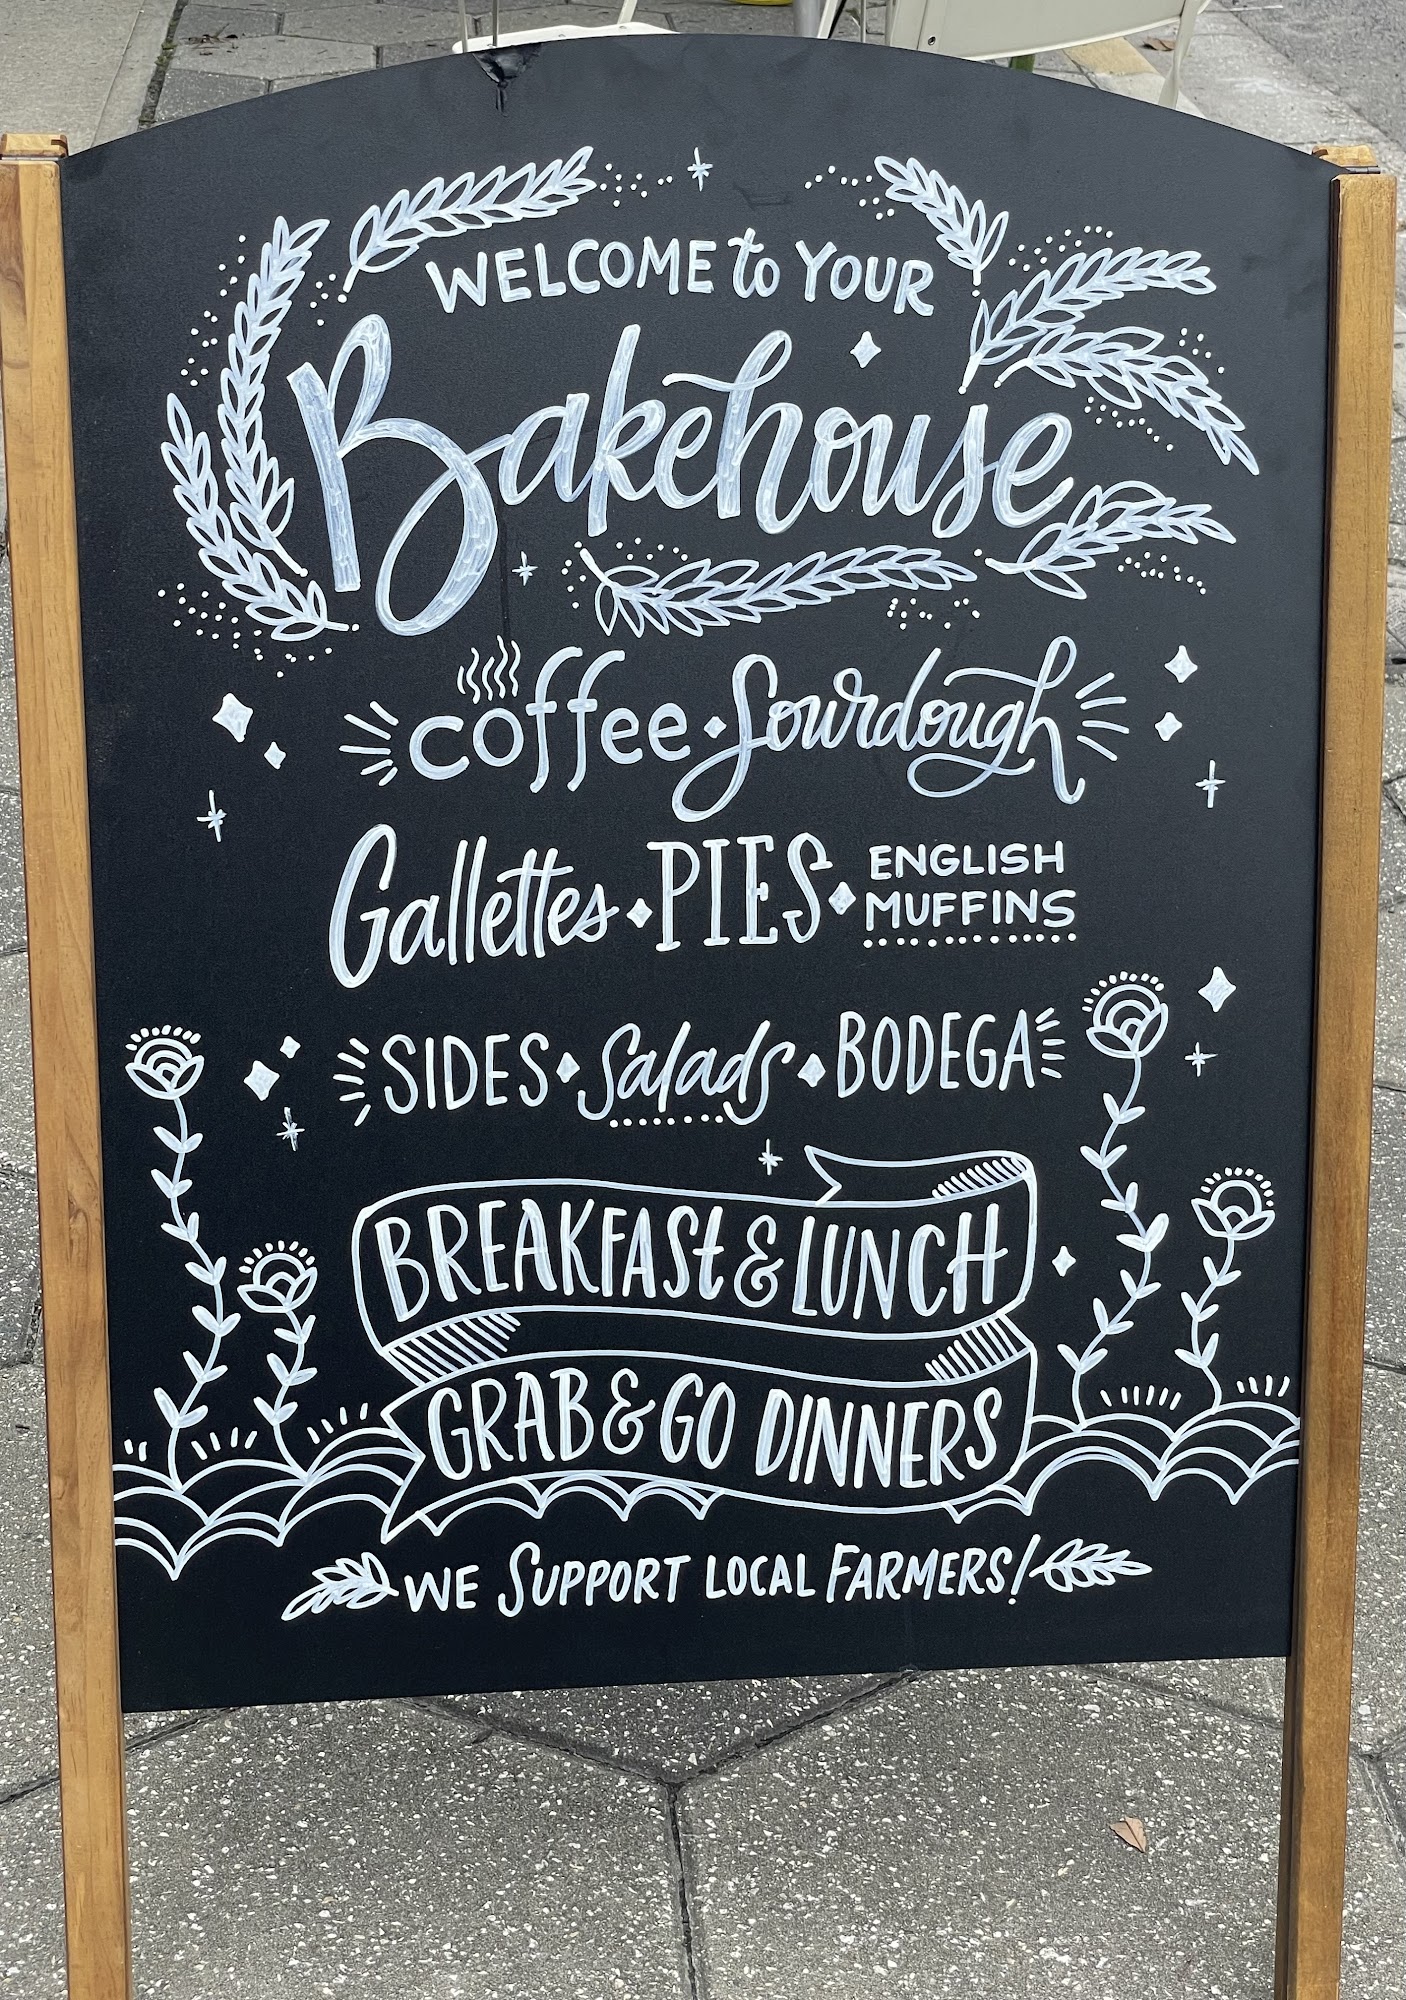 WELCOME to YOUR
Bakehouse
coffee • Sourdough
Gallettes • PIES • ENGLISH MUFFINS
SIDES • Salads • BODEGA
BREAKFASt & LUNCH
GRAB & GO DINNERS
WE SUPPORT LOCAL FARMERS!